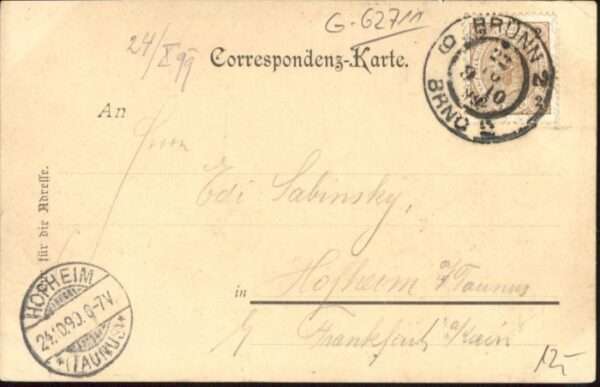 G-62711
24/X 99
Correspondenz-Karte.
BRÜNN 2
BRNO
An
Herrn
Edi Sabinsky,
in Hofheim a/Taunus
Frankfurt a/Main
für die Adresse.
HOFHEIM
24.10.99. 6-7V.
*(TAUNUS)*
12,-